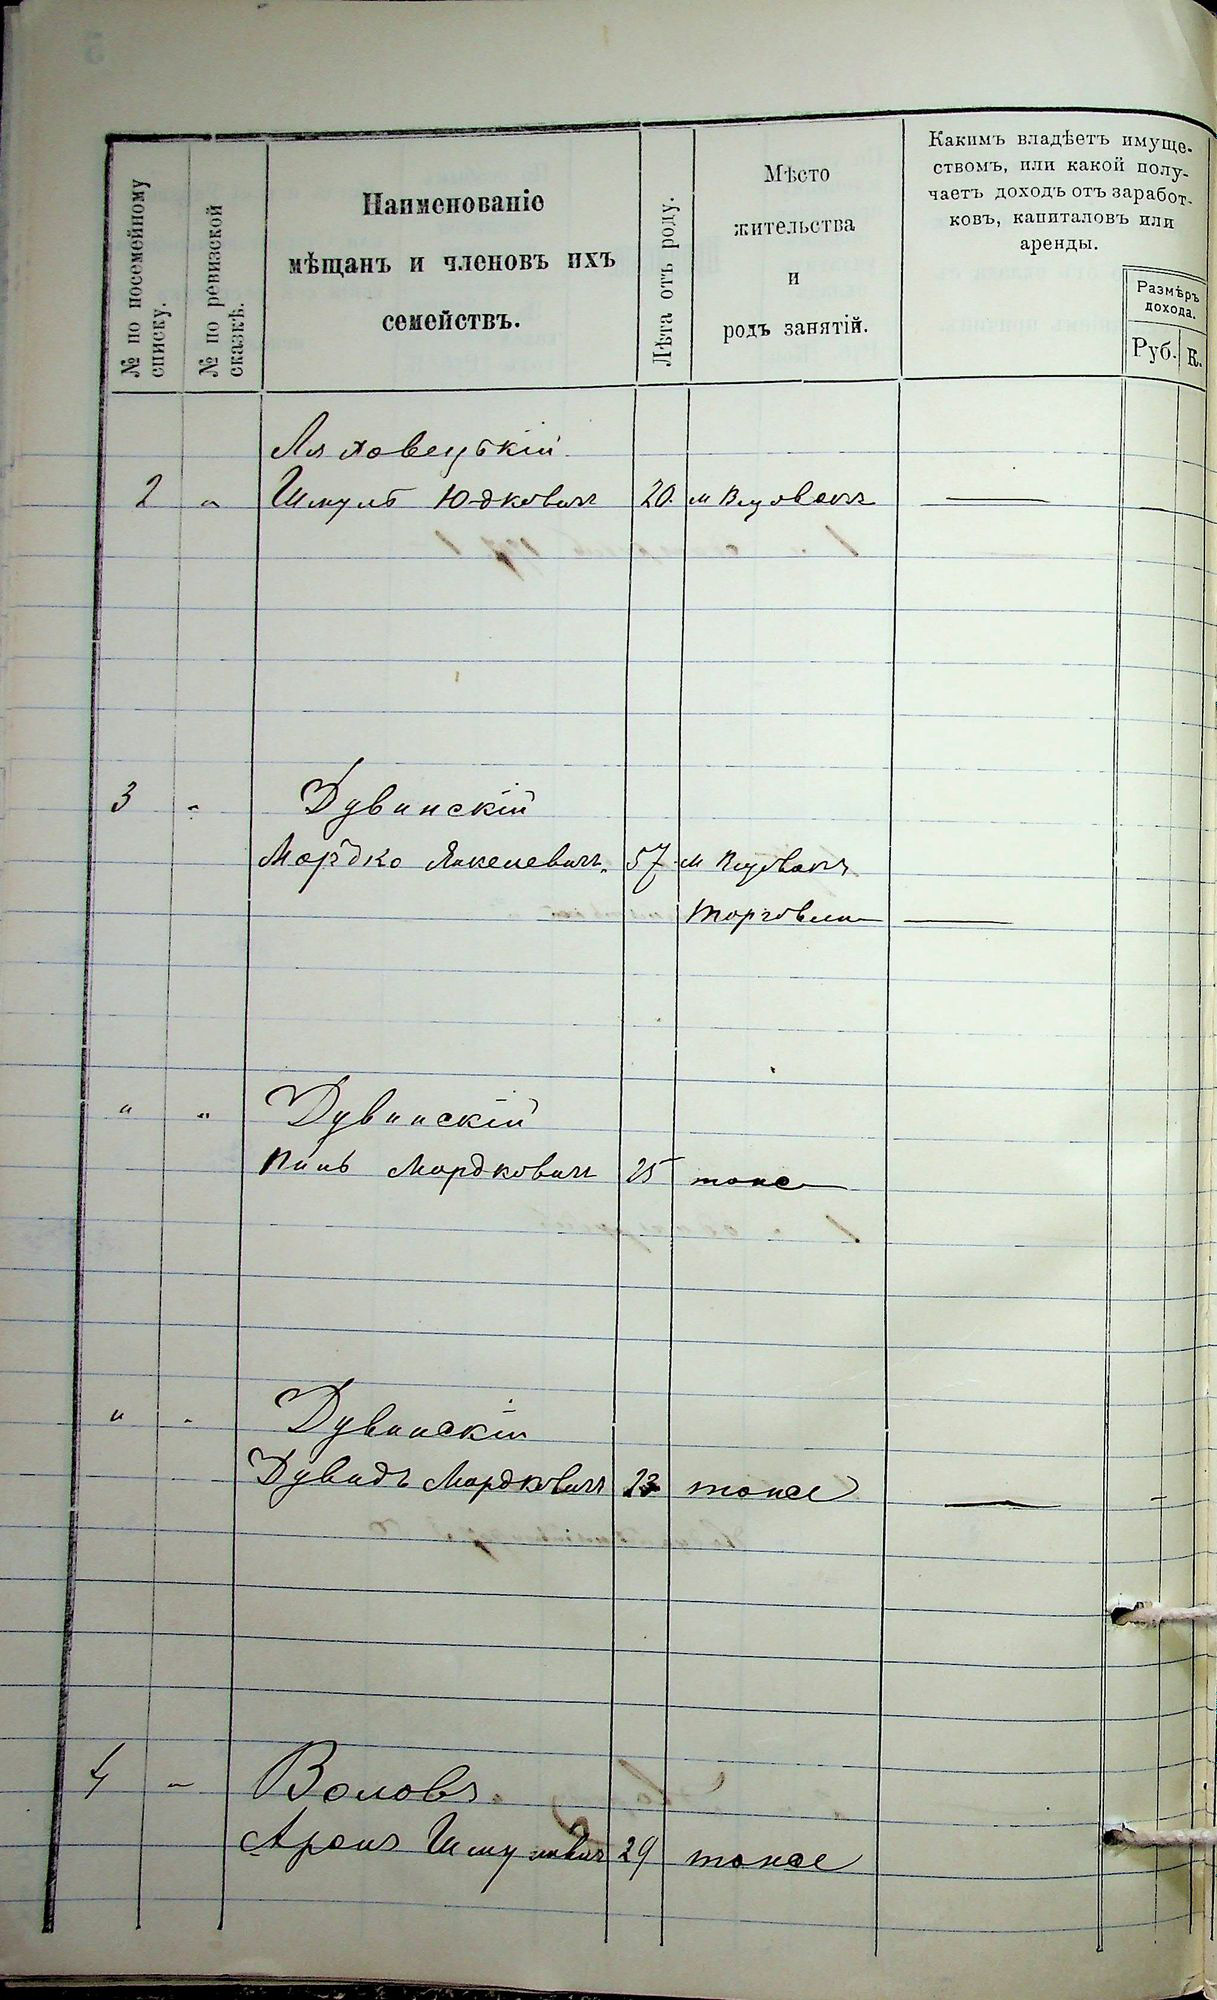 № по посемейному
списку.
№ по ревизской
сказкѣ.
Наименованіе
мѣщанъ и членовъ ихъ
семействъ.
Лѣта отъ роду.
Мѣсто
жительства
и
родъ занятій.
Какимъ владѣетъ имуще-
ствомъ, или какой полу-
чаетъ доходъ отъ заработ-
ковъ, капиталовъ или
аренды.
Размѣръ
дохода.
Руб. К.
Ляховецькій
2 " Шмуль Юдковичъ 20. м
3 " Дувинскій
Мордко Янкелевичъ. 57 м
торговля
" " Дувинскій
Пинь Мордковичъ 25 тоже
" " Дувинскій
Дувидъ Мордковичъ 23 тоже
4 " Воловъ
Аронъ Шмулевич 29 тоже